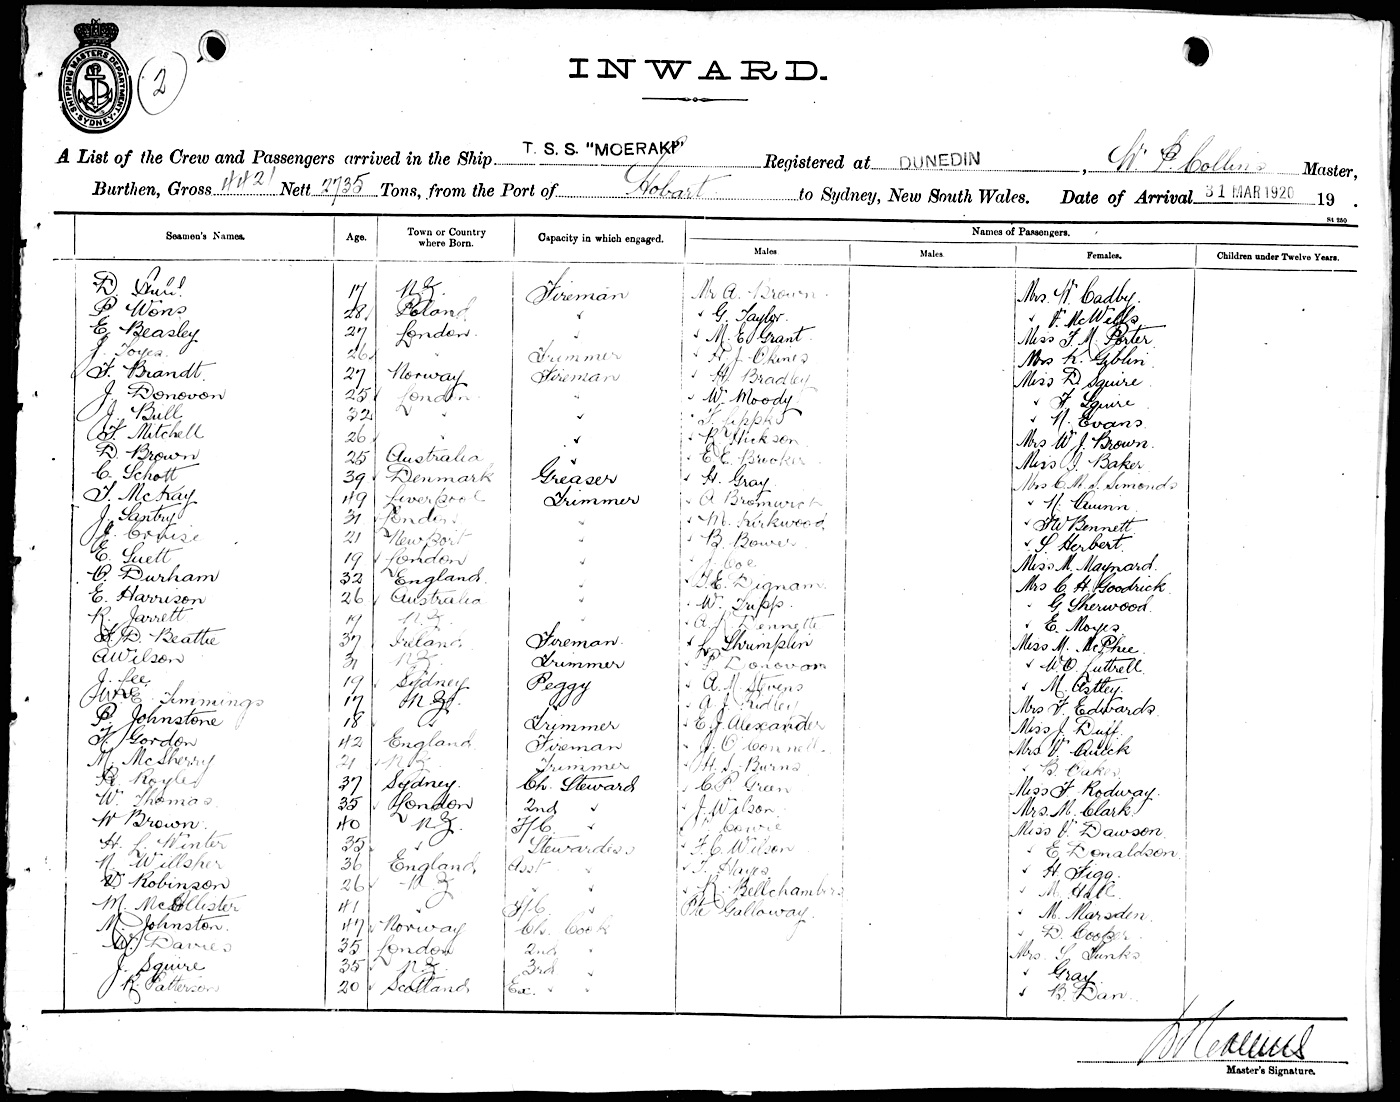 SHIPPING MASTERS DEPARTMENT
SYDNEY
2
INWARD.
A List of the Crew and Passengers arrived in the Ship T. S. S. "MOERAKI" Registered at DUNEDIN, W. P. Collins Master,
Burthen, Gross 4421 Nett 2735 Tons, from the Port of Hobart to Sydney, New South Wales. Date of Arrival 31 MAR 1920 19 .
St 250
Seamen's Names. Age. Town or Country where Born. Capacity in which engaged. Names of Passengers.
Males Males. Females. Children under Twelve Years.
D 17 N.Z. Fireman Mr A. Brown Mrs. W. Cadby.
P Wons 28 Poland " " G. Taylor " McWells
E. Beasley 27 London " " M. E. Grant Miss F. M. Porter
J. 26 " Trimmer " H. J. Okines Mrs K. Giblin
F. Brandt. 27 Norway Fireman " H. Bradley Miss D Squire
J. Donovon 25 London " " W. Moody " F Squire
J. Bull 32 " " " " N. Evans
F. Mitchell 26 " " " R. Hickson Mrs W. J. Brown.
D. Brown 25 Australia " " E. E. Miss J. Baker
C. Schott 39 Denmark Greaser " H. Gray Mrs C. M. S. Simonds
J. McKay 49 Liverpool Trimmer " A Bromwich " N. Quinn
J. Santry 31 London " " M. Kirkwood " Bennett
J. Cruise 21 Newport " " B. Bowes " S. Herbert
E. Suett 19 London " " J. Coe Miss M. Maynard.
C. Durham 32 England " " Dignam Mrs C. H. Goodrick
E. Harrison 26 Australia " " W. Tripp. " G Sherwood
R. Jarrett 17 N.Z. " " Dennett " E. Moyes
D Beattie 37 Ireland Fireman " L. Shrimpton Miss M. McPhee
A Wilson 31 N.Z. Trimmer " P Donovan " W. O. Luttrell
J. Lee 19 Sydney Peggy " A. M Stevens " M. Astley
Timmings 17 N.Z. " A. J. Ridley Mrs F. Edwards
P. Johnstone 18 " Trimmer " E. J. Alexander Miss J. Duff
Gordon 42 England Fireman " O'Connell Mrs V. Quick
M. McSherry 21 N.Z. Trimmer " H. S. Burns " B. Oakes
R Royle 37 Sydney. Ch. Steward " C. P. Miss F Rodway.
W. Thomas 35 London 2nd " " J. Wilson Mrs. M. Clark
W Brown 40 N.Z. F/C " " Cowie Miss V. Dawson
H. L. Winter 35 " Stewardess " F. C. Wilson " E Donaldson
N. Willsher 36 England Asst " " T. Hayes " H Figg
Robinson 26 N.Z. " " " R. Bellchambers " M Hall
M. McAllister 41 " F/C " Galloway " M. Marsden
M. Johnston. 47 Norway Ch. Cook " D. Cooper
W. Davies 35 London 2nd " Mrs. S Funks
J. Squire 35 N.Z. 3rd " " Gray
R. Patterson 20 Scotland Ex. " " " B. Dan
Master's Signature.